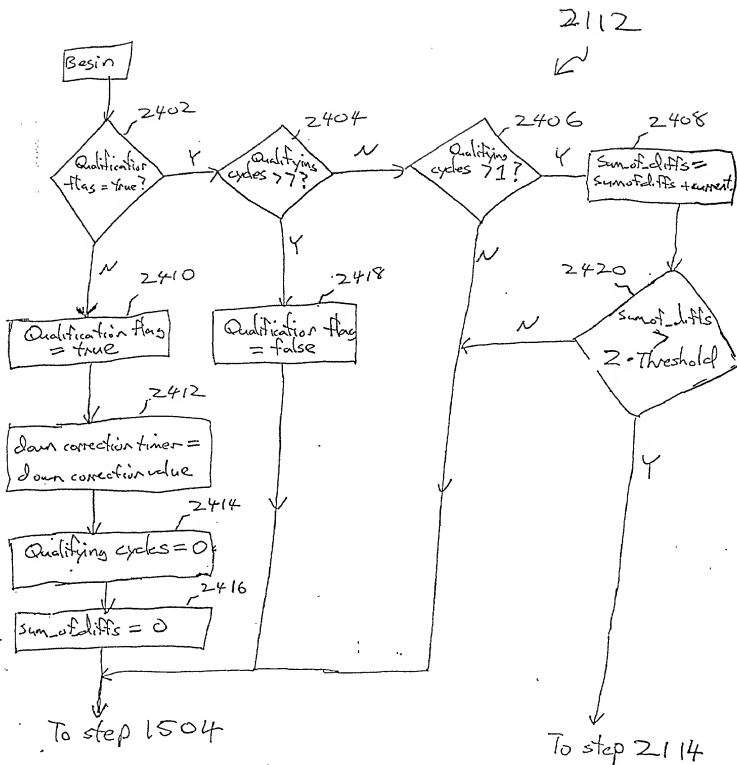 2112
Begin
2402
Qualification
flag = true?
Y
2404
Qualifying
cycles > 7?
N
2406
Qualifying
cycles > 1?
Y
2408
sum_of_diffs =
sumofdiffs + current
N
Y
N
2410
Qualification flag
= true
2418
Qualification flag
= false
2420
sumof_diffs
>
2 • Threshold
N
Y
2412
down correction timer =
down correction value
2414
Qualifying cycles = 0
2416
sum_of diffs = 0
To step 1504
To step 2114